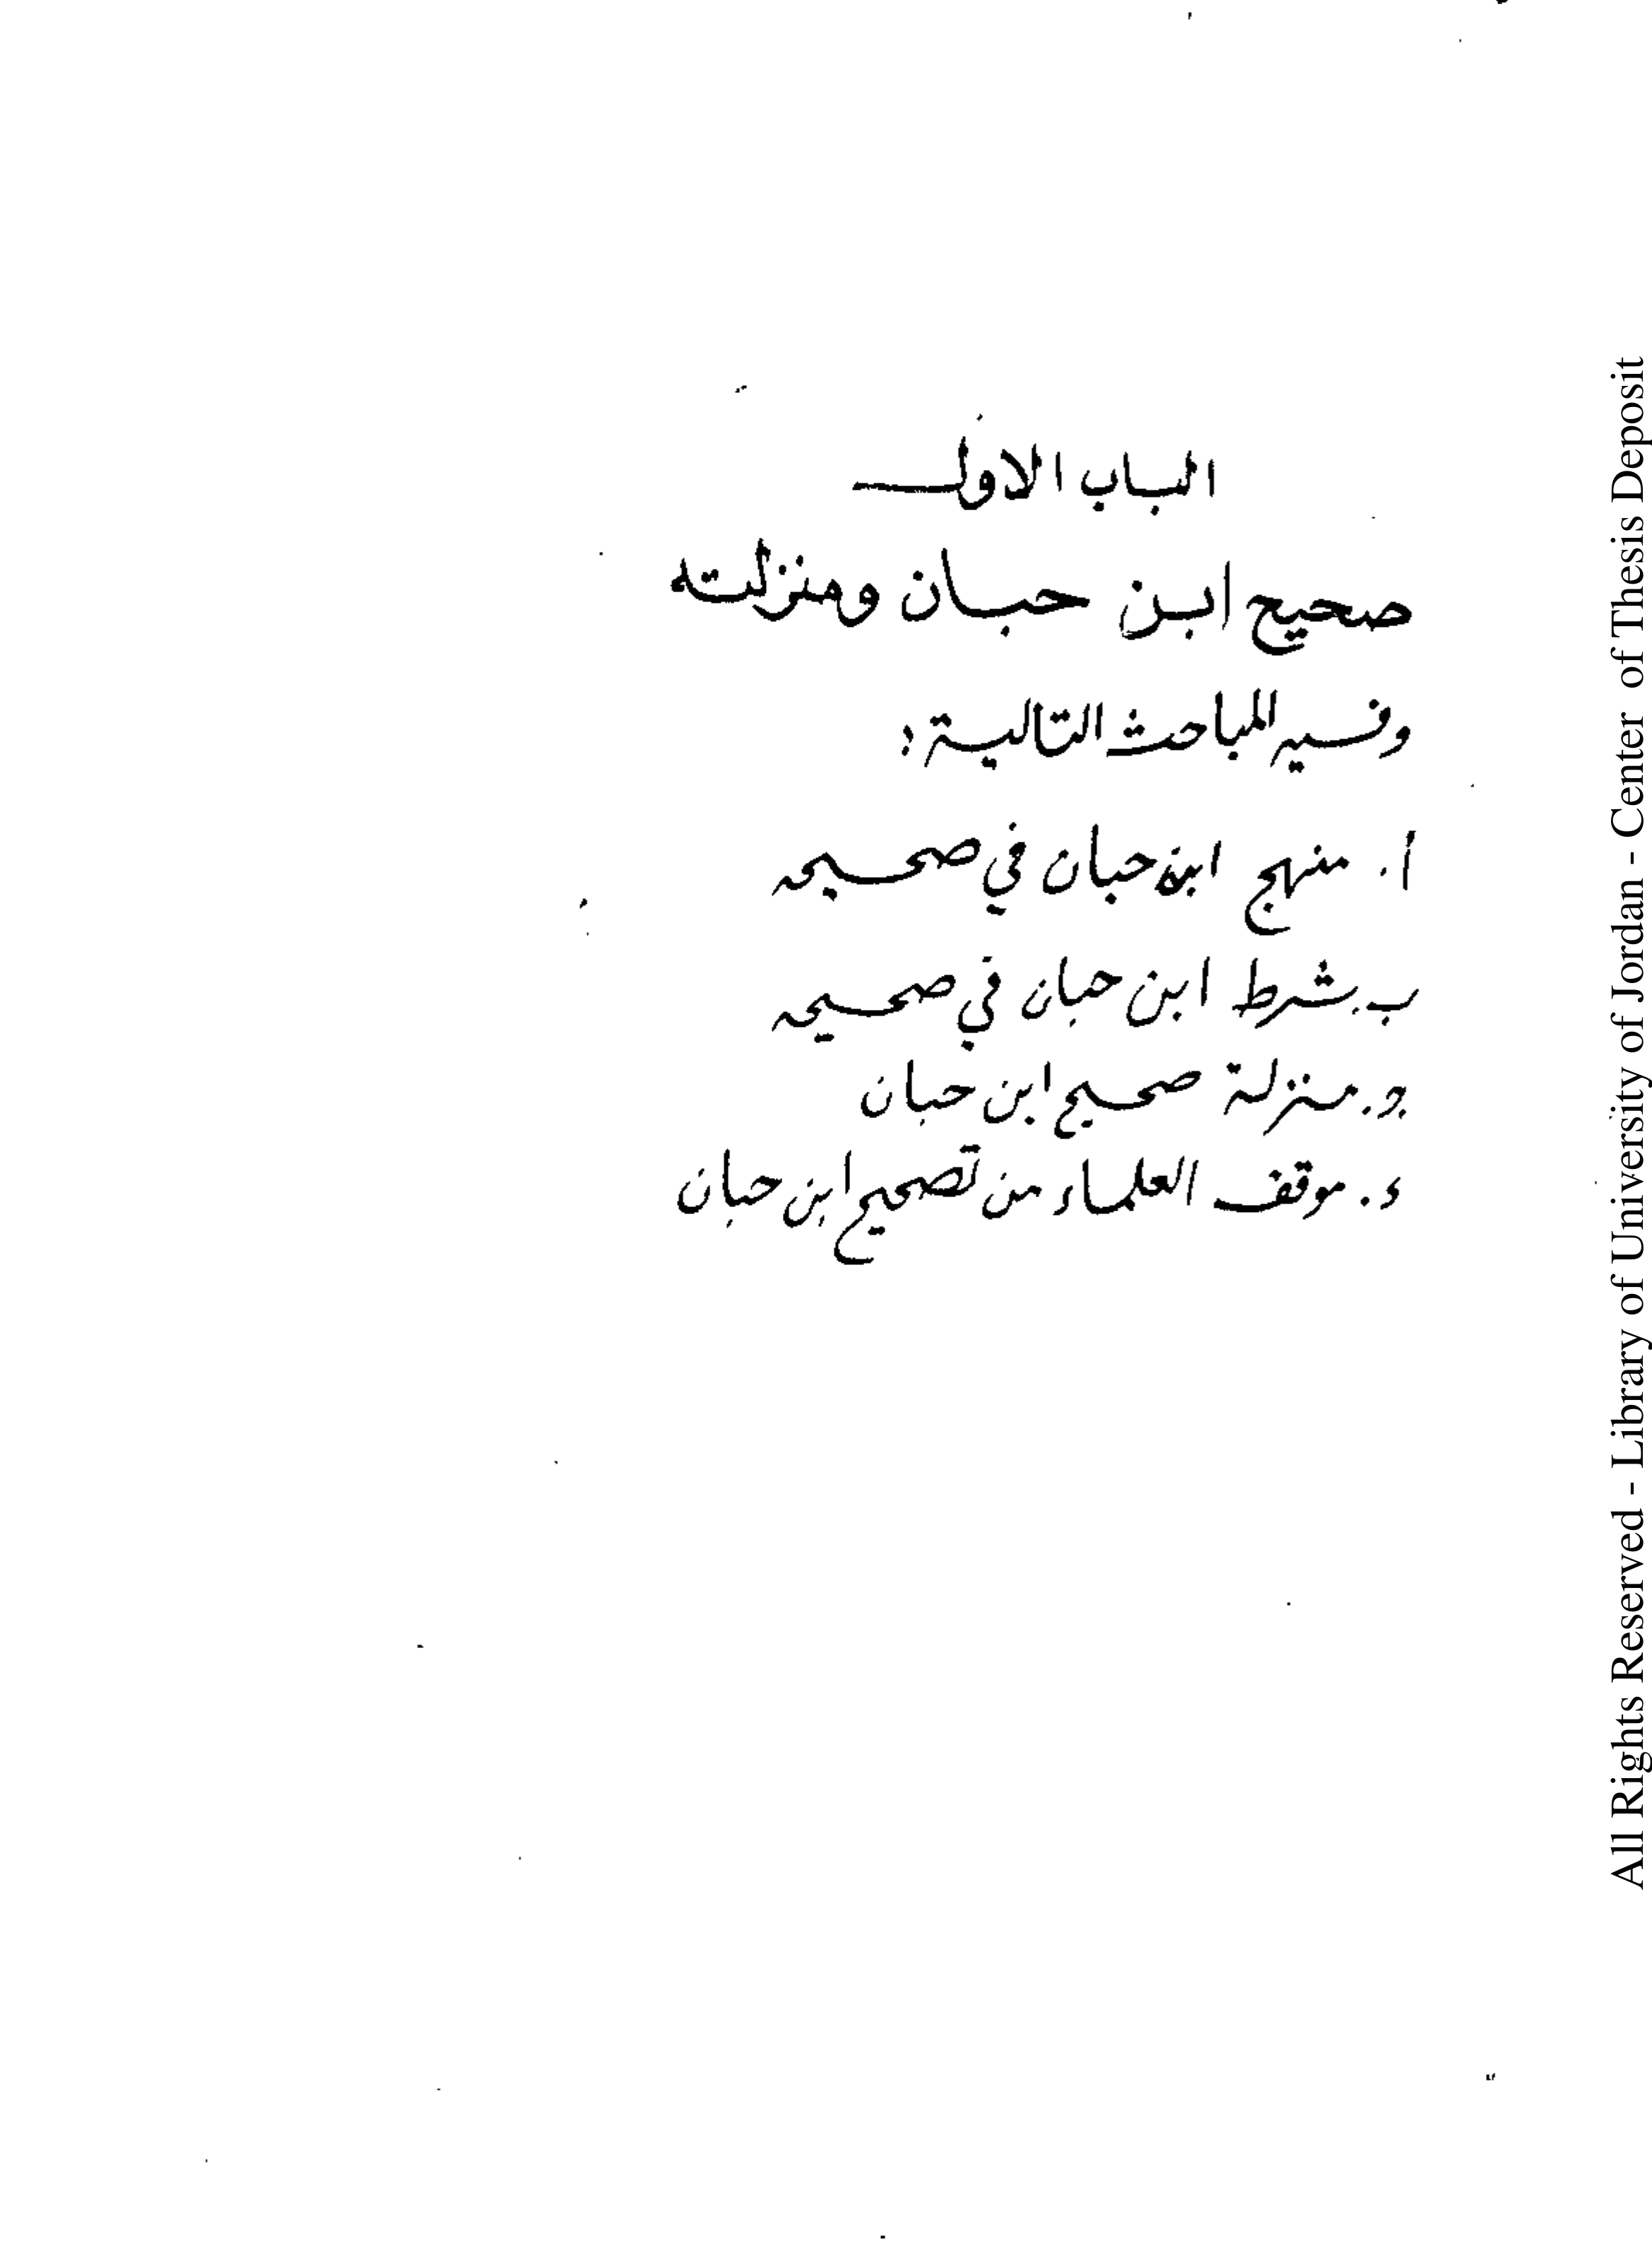 الباب الاول
صحيح ابن حبان ومنزلته
وفيه المباحث التالية :
أ. منهج ابن حبان في صحيحه
ب. شرط ابن حبان في صحيحه
ج. منزلة صحيح ابن حبان
د. موقف العلماء من تصحيح ابن حبان
All Rights Reserved - Library of University of Jordan - Center of Thesis Deposit